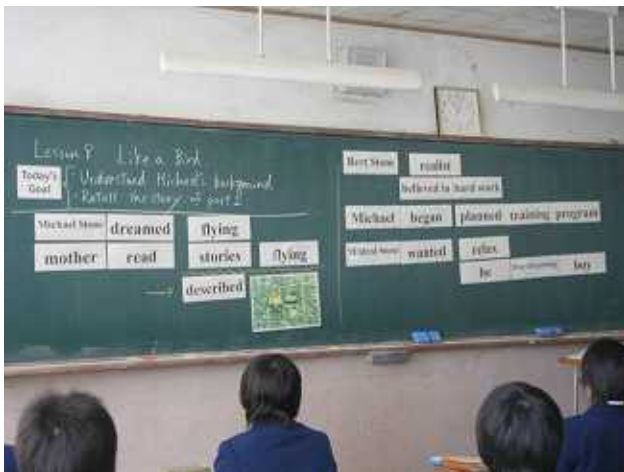 Lesson 8 Like a Bird
Today's Goal
Understand Michael's background
Retell the story of part 1
Michael Stone dreamed flying
mother read stories flying
described
Bert Stone realist
believed in hard work
Michael began planned training program
Michael Stone wanted relax
be boy